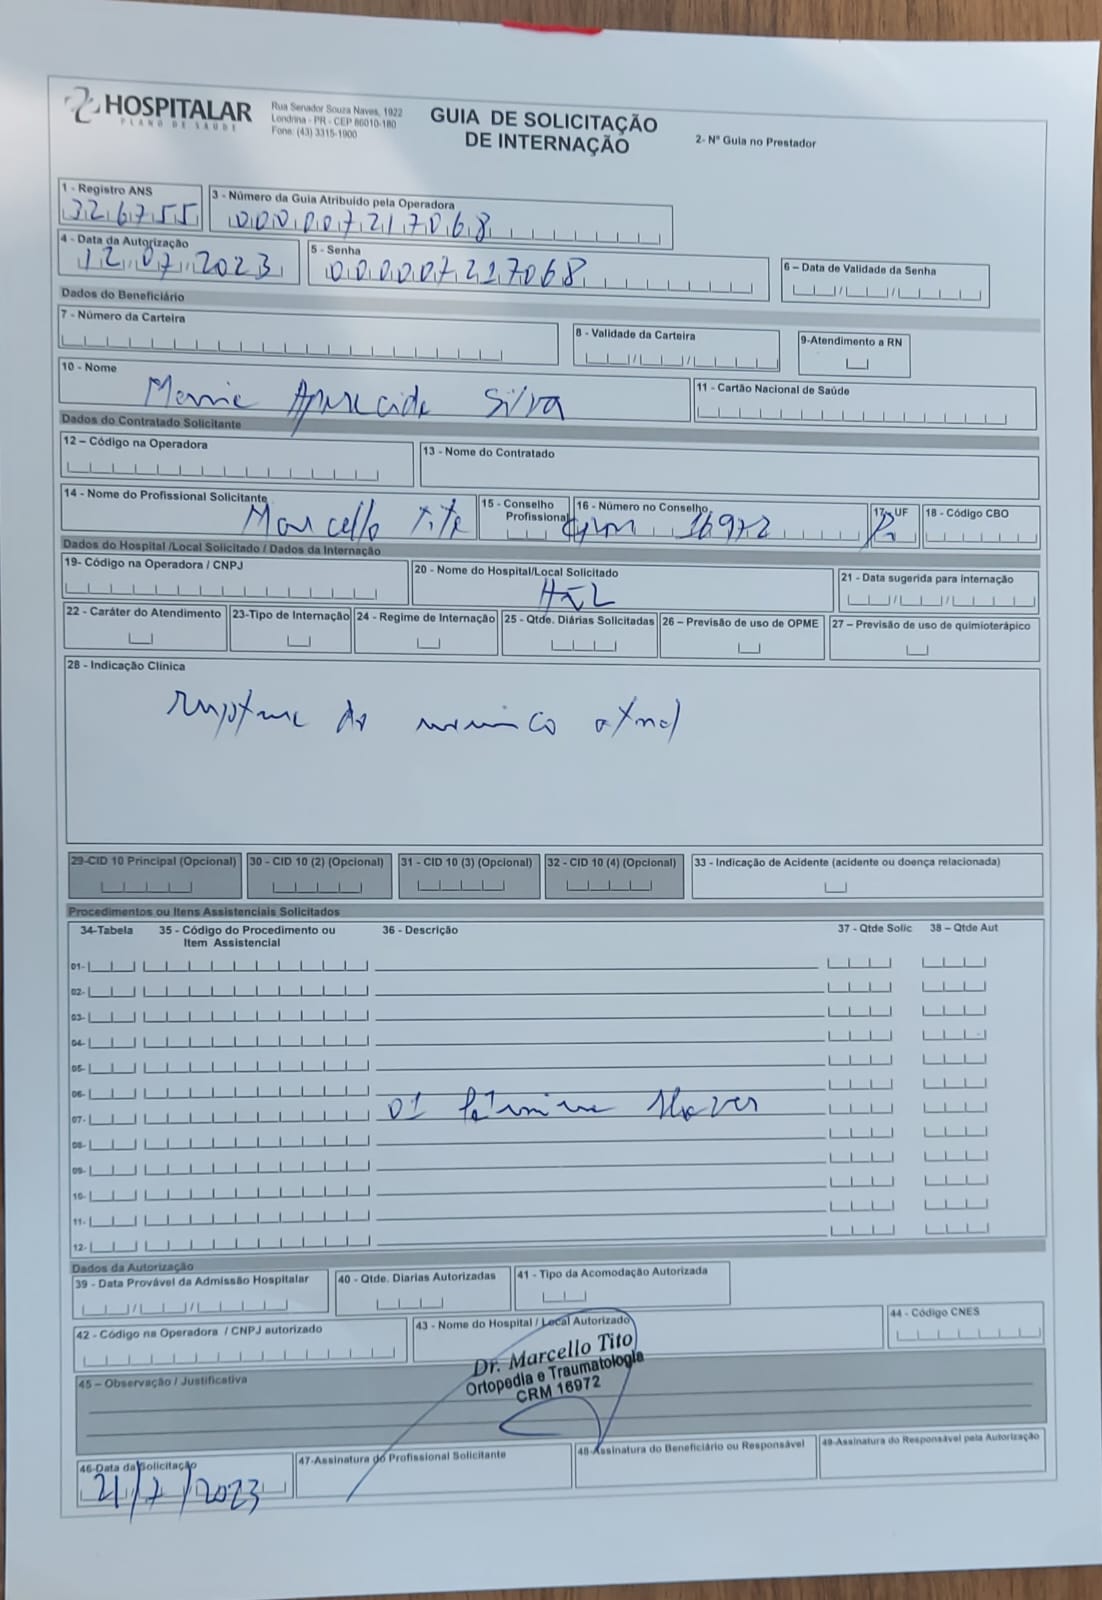 HOSPITALAR
PLANO DE SAÚDE
Rua Senador Souza Naves, 1922
Londrina - PR - CEP 86010-180
Fone: (43) 3315-1900
GUIA DE SOLICITAÇÃO
DE INTERNAÇÃO
2- Nº Guia no Prestador
1 - Registro ANS
326755
3 - Número da Guia Atribuido pela Operadora
000007217068
4 - Data da Autorização
12 07 2023
5 - Senha
000007217068
6 – Data de Validade da Senha
Dados do Beneficiário
7 - Número da Carteira
8 - Validade da Carteira
9-Atendimento a RN
10 - Nome
Maria Aparecida Silva
11 - Cartão Nacional de Saúde
Dados do Contratado Solicitante
12 – Código na Operadora
13 - Nome do Contratado
14 - Nome do Profissional Solicitante
Marcello Tito
15 - Conselho
Profissional
16 - Número no Conselho
crm 16972
17- UF
Pr
18 - Código CBO
Dados do Hospital /Local Solicitado / Dados da Internação
19- Código na Operadora / CNPJ
20 - Nome do Hospital/Local Solicitado
21 - Data sugerida para internação
22 - Caráter do Atendimento
23-Tipo de Internação
24 - Regime de Internação
25 - Qtde. Diárias Solicitadas
26 – Previsão de uso de OPME
27 – Previsão de uso de quimioterápico
28 - Indicação Clínica
ruptura do menisco
29-CID 10 Principal (Opcional)
30 - CID 10 (2) (Opcional)
31 - CID 10 (3) (Opcional)
32 - CID 10 (4) (Opcional)
33 - Indicação de Acidente (acidente ou doença relacionada)
Procedimentos ou Itens Assistenciais Solicitados
34-Tabela
35 - Código do Procedimento ou
Item Assistencial
36 - Descrição
37 - Qtde Solic
38 – Qtde Aut
01-
02-
03-
04-
05-
06-
07-
01 lâmina Shaver
08-
09-
10-
11-
12-
Dados da Autorização
39 - Data Provável da Admissão Hospitalar
40 - Qtde. Diarias Autorizadas
41 - Tipo da Acomodação Autorizada
42 - Código na Operadora / CNPJ autorizado
43 - Nome do Hospital / Local Autorizado
44 - Código CNES
Dr. Marcello Tito
Ortopedia e Traumatologia
CRM 16972
45 – Observação / Justificativa
46-Data da Solicitação
21/7/2023
47-Assinatura do Profissional Solicitante
48-Assinatura do Beneficiário ou Responsável
49-Assinatura do Responsável pela Autorização